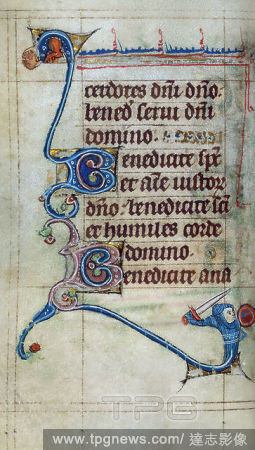 cerdotes dñi dño.
bened̄ serui dñi
domino.
Benedicite sp̄c
et aīe iustor
dño: benedicite sc̄i
et humiles corde
domino.
Benedicite ana
TPG
www.tpgnews.com/ 達志影像